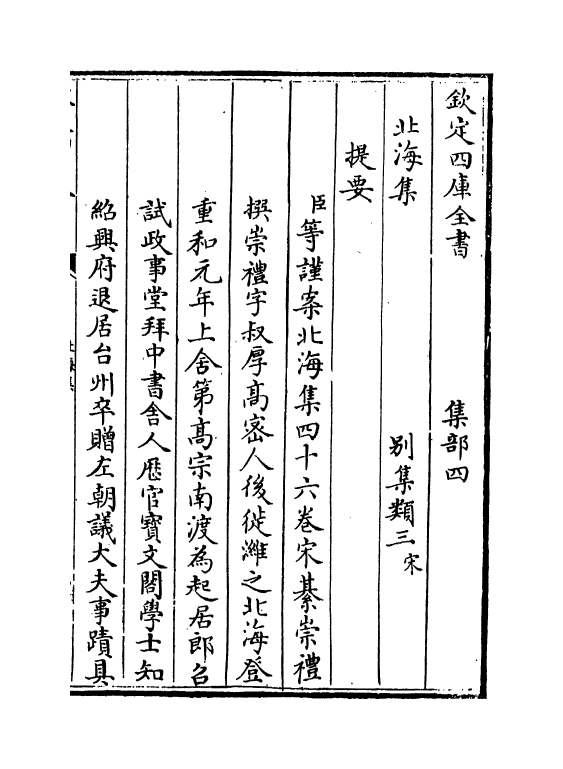 欽定四庫全書　集部四
北海集　別集類三宋
提要
臣等謹案北海集四十六卷宋綦崇禮
撰崇禮字叔厚髙宻人後徙濰之北海登
重和元年上舍第髙宗南渡為起居郎召
試政事堂拜中書舍人歴官寳文閣學士知
紹興府退居台州卒贈左朝議大夫事蹟具